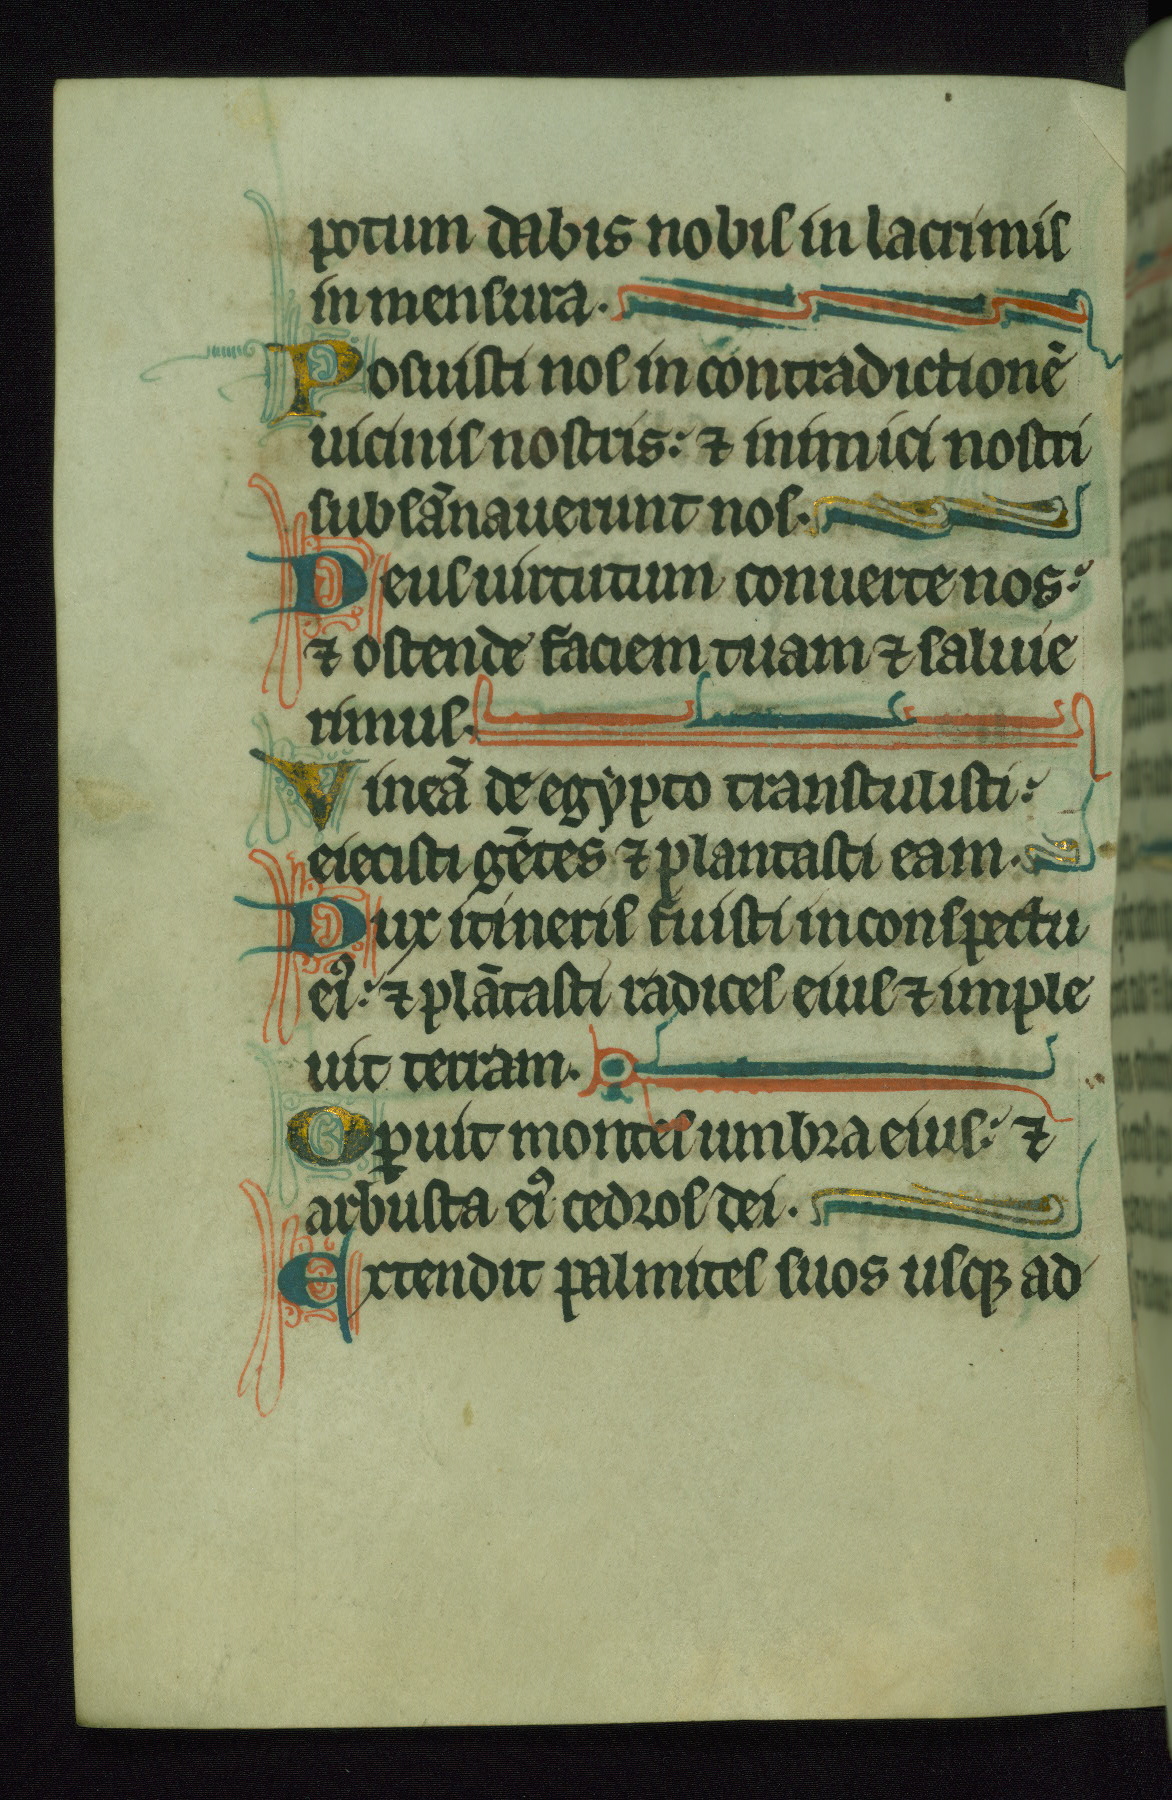 potum dabis nobis in lacrimis
in mensura.
Posuisti nos in contradictionē
uicinis nostris: ⁊ inimici nostri
subsānauerunt nos.
Deus uirtutum conuerte nos:
⁊ ostende faciem tuam ⁊ salui e
rimus.
Vineā de egypto transtulisti:
eiecisti gētes ⁊ plantasti eam.
Dux itineris fuisti in conspectu
eiꝰ: ⁊ plātasti radices eius ⁊ imple
uit terram.
Oꝑuit montes umbra eius: ⁊
arbusta eiꝰ cedros dei.
Extendit palmites suos usqꝫ ad